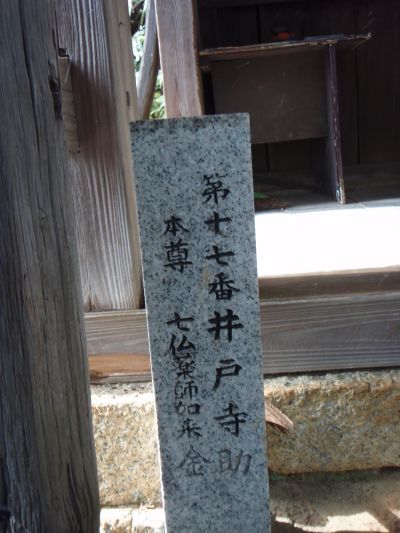 第十七番井戸寺助
本尊 七仏薬師如来金